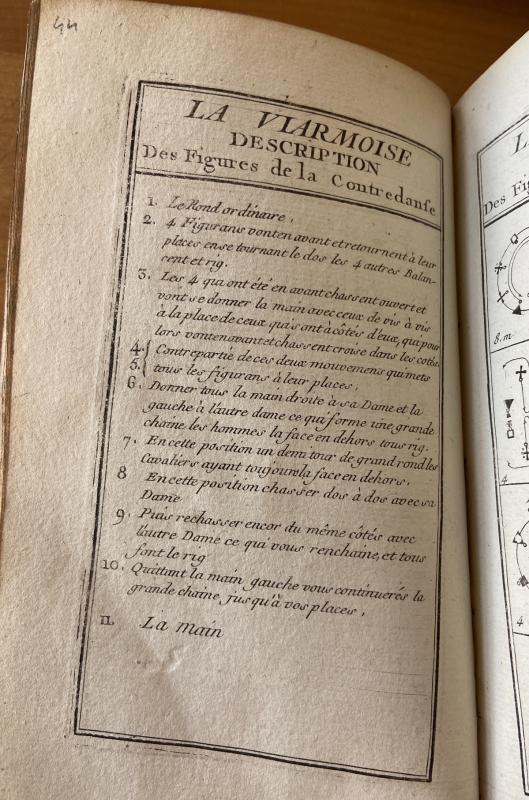 44
LA VIARMOISE
DESCRIPTION
Des Figures de la Contredanse
1. Le Rond ordinaire,
2. 4 Figurans vont en avant et retournent à leur
places en se tournant le dos les 4 autres Balan-
cent et rig.
3. Les 4 qui ont été en avant chassent ouvert et
vont se donner la main avec ceux de vis à vis
à la place de ceux qui sont à côtés d'eux, qui pour
lors vont en avant et chassent croisé dans les cotés.
4. Contrepartie de ces deux mouvemens qui mets
5. tous les figurans à leur places,
6. Donner tous la main droite à sa Dame et la
gauche à l'autre dame ce qui forme une grande
chaine les hommes la face en dehors tous rig.
7. En cette position un demi tour de grand rond les
Cavaliers ayant toujours la face en dehors,
8 En cette position chasser dos à dos avec sa
Dame
9. Puis rechasser encor du même côtés avec
l'autre Dame ce qui vous renchaine, et tous
font le rig
10. Quittant la main gauche vous continuerés la
grande chaine jusqu'à vos places,
11 La main
L
Des Fig
8. m
4
4